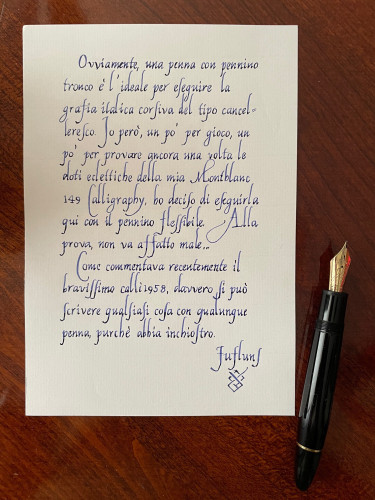 Ovviamente, una penna con pennino
tronco è l'ideale per eſeguire la
grafia italica corſiva del tipo cancel-
lereſco. Io però, un po' per gioco, un
po' per provare ancora una volta le
doti eclettiche della mia Montblanc
149 Calligraphy, ho deciſo di eſeguirla
qui con il pennino fleſſibile. Alla
prova, non va affatto male...
Come commentava recentemente il
braviſſimo calli1958, davvero ſi può
ſcrivere qualſiaſi coſa con qualunque
penna, purchè abbia inchioſtro.
Fufluns